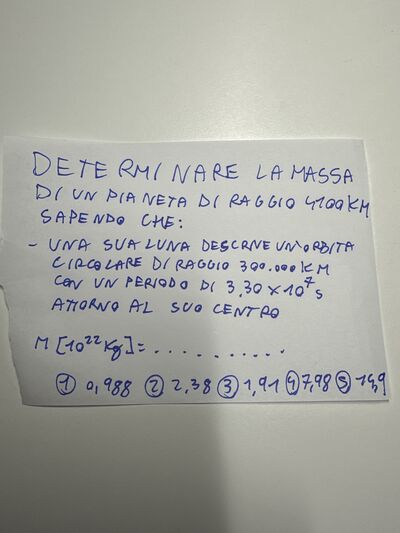 DETERMINARE LA MASSA
DI UN PIANETA DI RAGGIO 4100 KM
SAPENDO CHE:
- UNA SUA LUNA DESCRIVE UN'ORBITA
CIRCOLARE DI RAGGIO 300.000 KM
CON UN PERIODO DI 3,30 × 10⁷ s
ATTORNO AL SUO CENTRO
M [10²² Kg] = ...........
① 0,988 ② 2,38 ③ 1,91 ④ 7,98 ⑤ 14,9